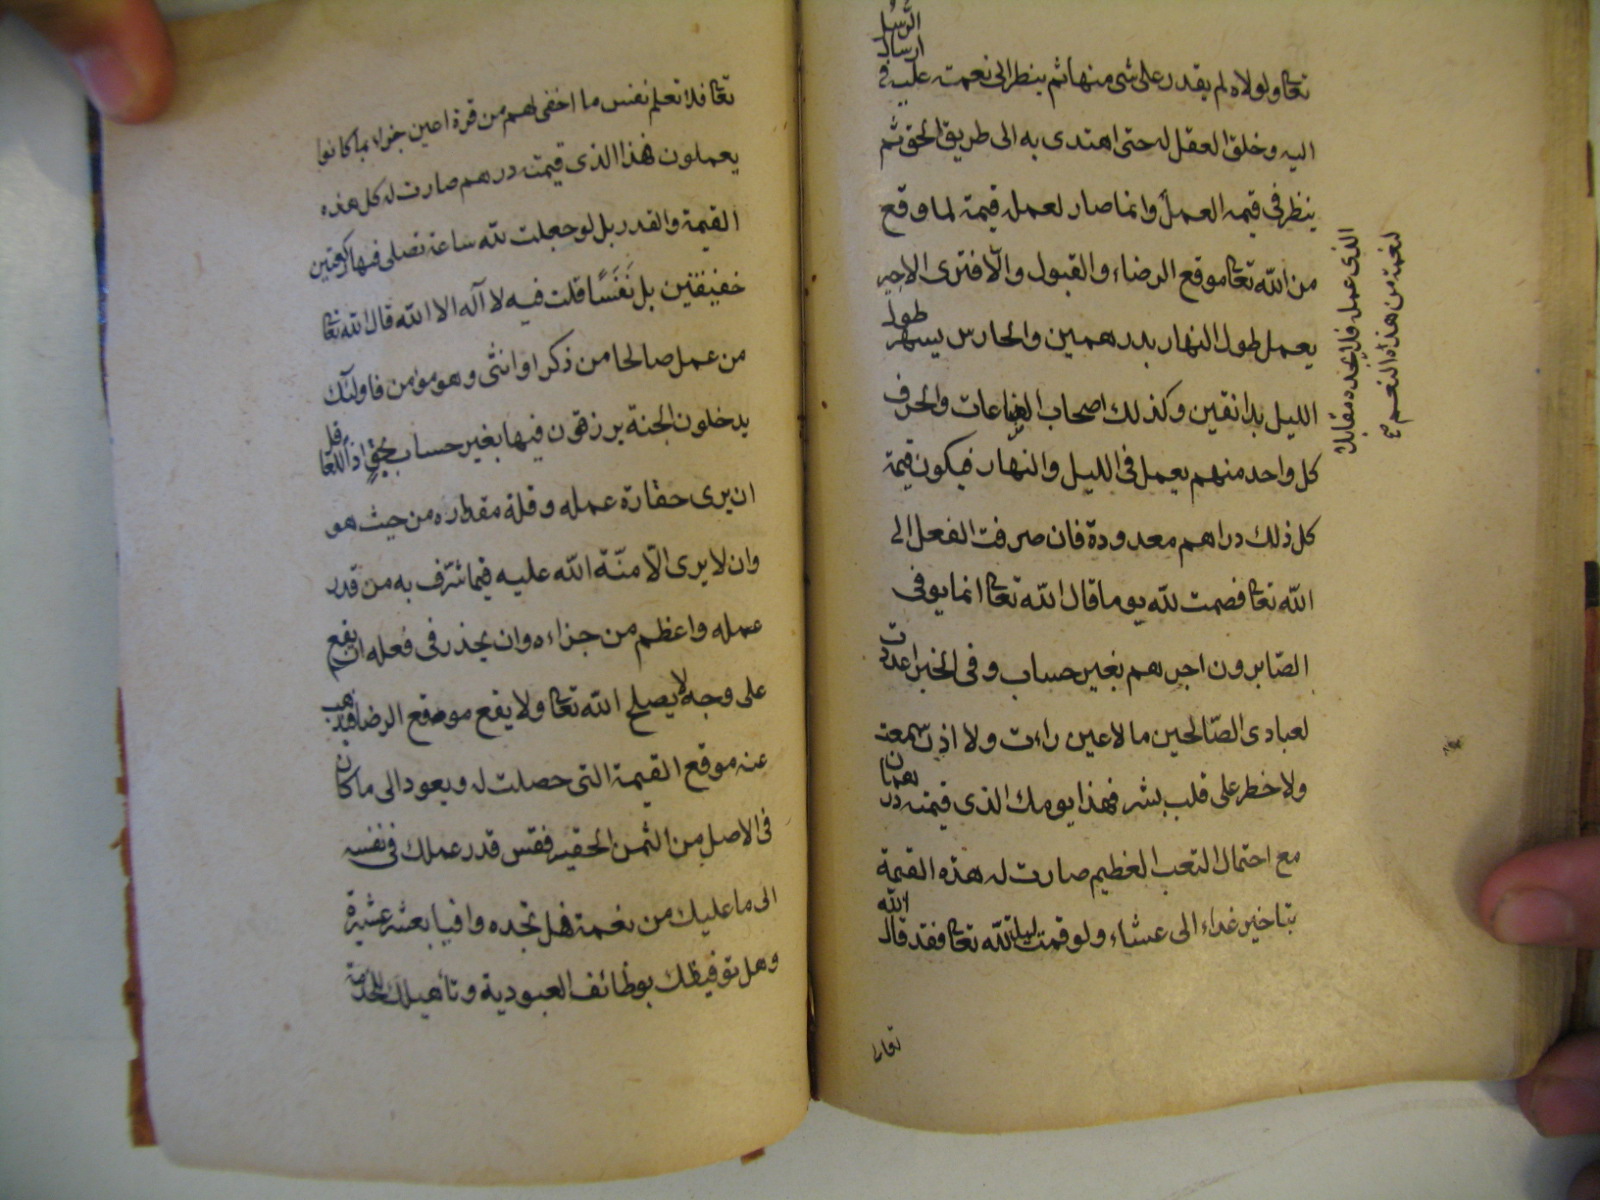 تعالى ولولاه لم يقدر على شئ منها ثم ينظر الى نعمته عليه في ارسال الرسل
اليه وخلق العقل له حتى اهتدى به الى طريق الحق ثم
ينظر في قيمه العمل وانما صار لعمله قيمة لما وقع
من الله تعالى موقع الرضاء والقبول والا فترى الاجير
يعمل طول النهار بدرهمين والحارس يسهر طول
الليل بدانقين وكذلك اصحاب الصناعات والحرف
كل واحد منهم يعمل في الليل والنهار فيكون قيمة
كل ذلك دراهم معدودة فان صرفت الفعل الى
الله تعالى فصمت لله يوما قال الله تعالى انما يوفى
الصابرون اجرهم بغير حساب وفي الخبر اعددت
لعبادى الصالحين ما لا عين رات ولا اذن سمعت
ولا خطر على قلب بشر فهذا يومك الذى قيمته درهمان
مع احتمال التعب العظيم صارت له هذه القيمة
بتاخير غداء الى عشاء ولو قمت ليلة لله تعالى فقد قال الله
تعالى
الذى عمل فلا يجده مقابلا
لنعمة من هذه النعم صح
تعالى فلا تعلم نفس ما اخفى لهم من قرة اعين جزاء بما كانوا
يعملون هذا الذى قيمته درهم صارت له كل هذه
القيمة والقدر بل لو جعلت لله ساعة تصلى فيها ركعتين
خفيفتين بل نَفَسًا قلت فيه لا آله الا الله قال الله تعالى
من عمل صالحا من ذكر او انثى وهو مؤمن فاولئك
يدخلون الجنة يرزقون فيها بغير حساب فحق اذًا للعاقل
ان يرى حقارة عمله وقلة مقداره من حيث هو
وان لا يرى الّا منّة الله عليه فيما شرّف به من قدر
عمله واعظم من جزاءه وان يحذر في فعله ان يقع
على وجه لا يصلح الله تعالى ولا يقع موضع الرضا فيذهب
عنه موقع القيمة التى حصلت له ويعود الى ما كان
في الاصل من الثمن الحقير فقس قدر عملك في نفسه
الى ما عليك من نعمة هل تجده وافيا بعشر عشيرة
وهل توفيقك بوظائف العبودية وتأهيلك للخدمة